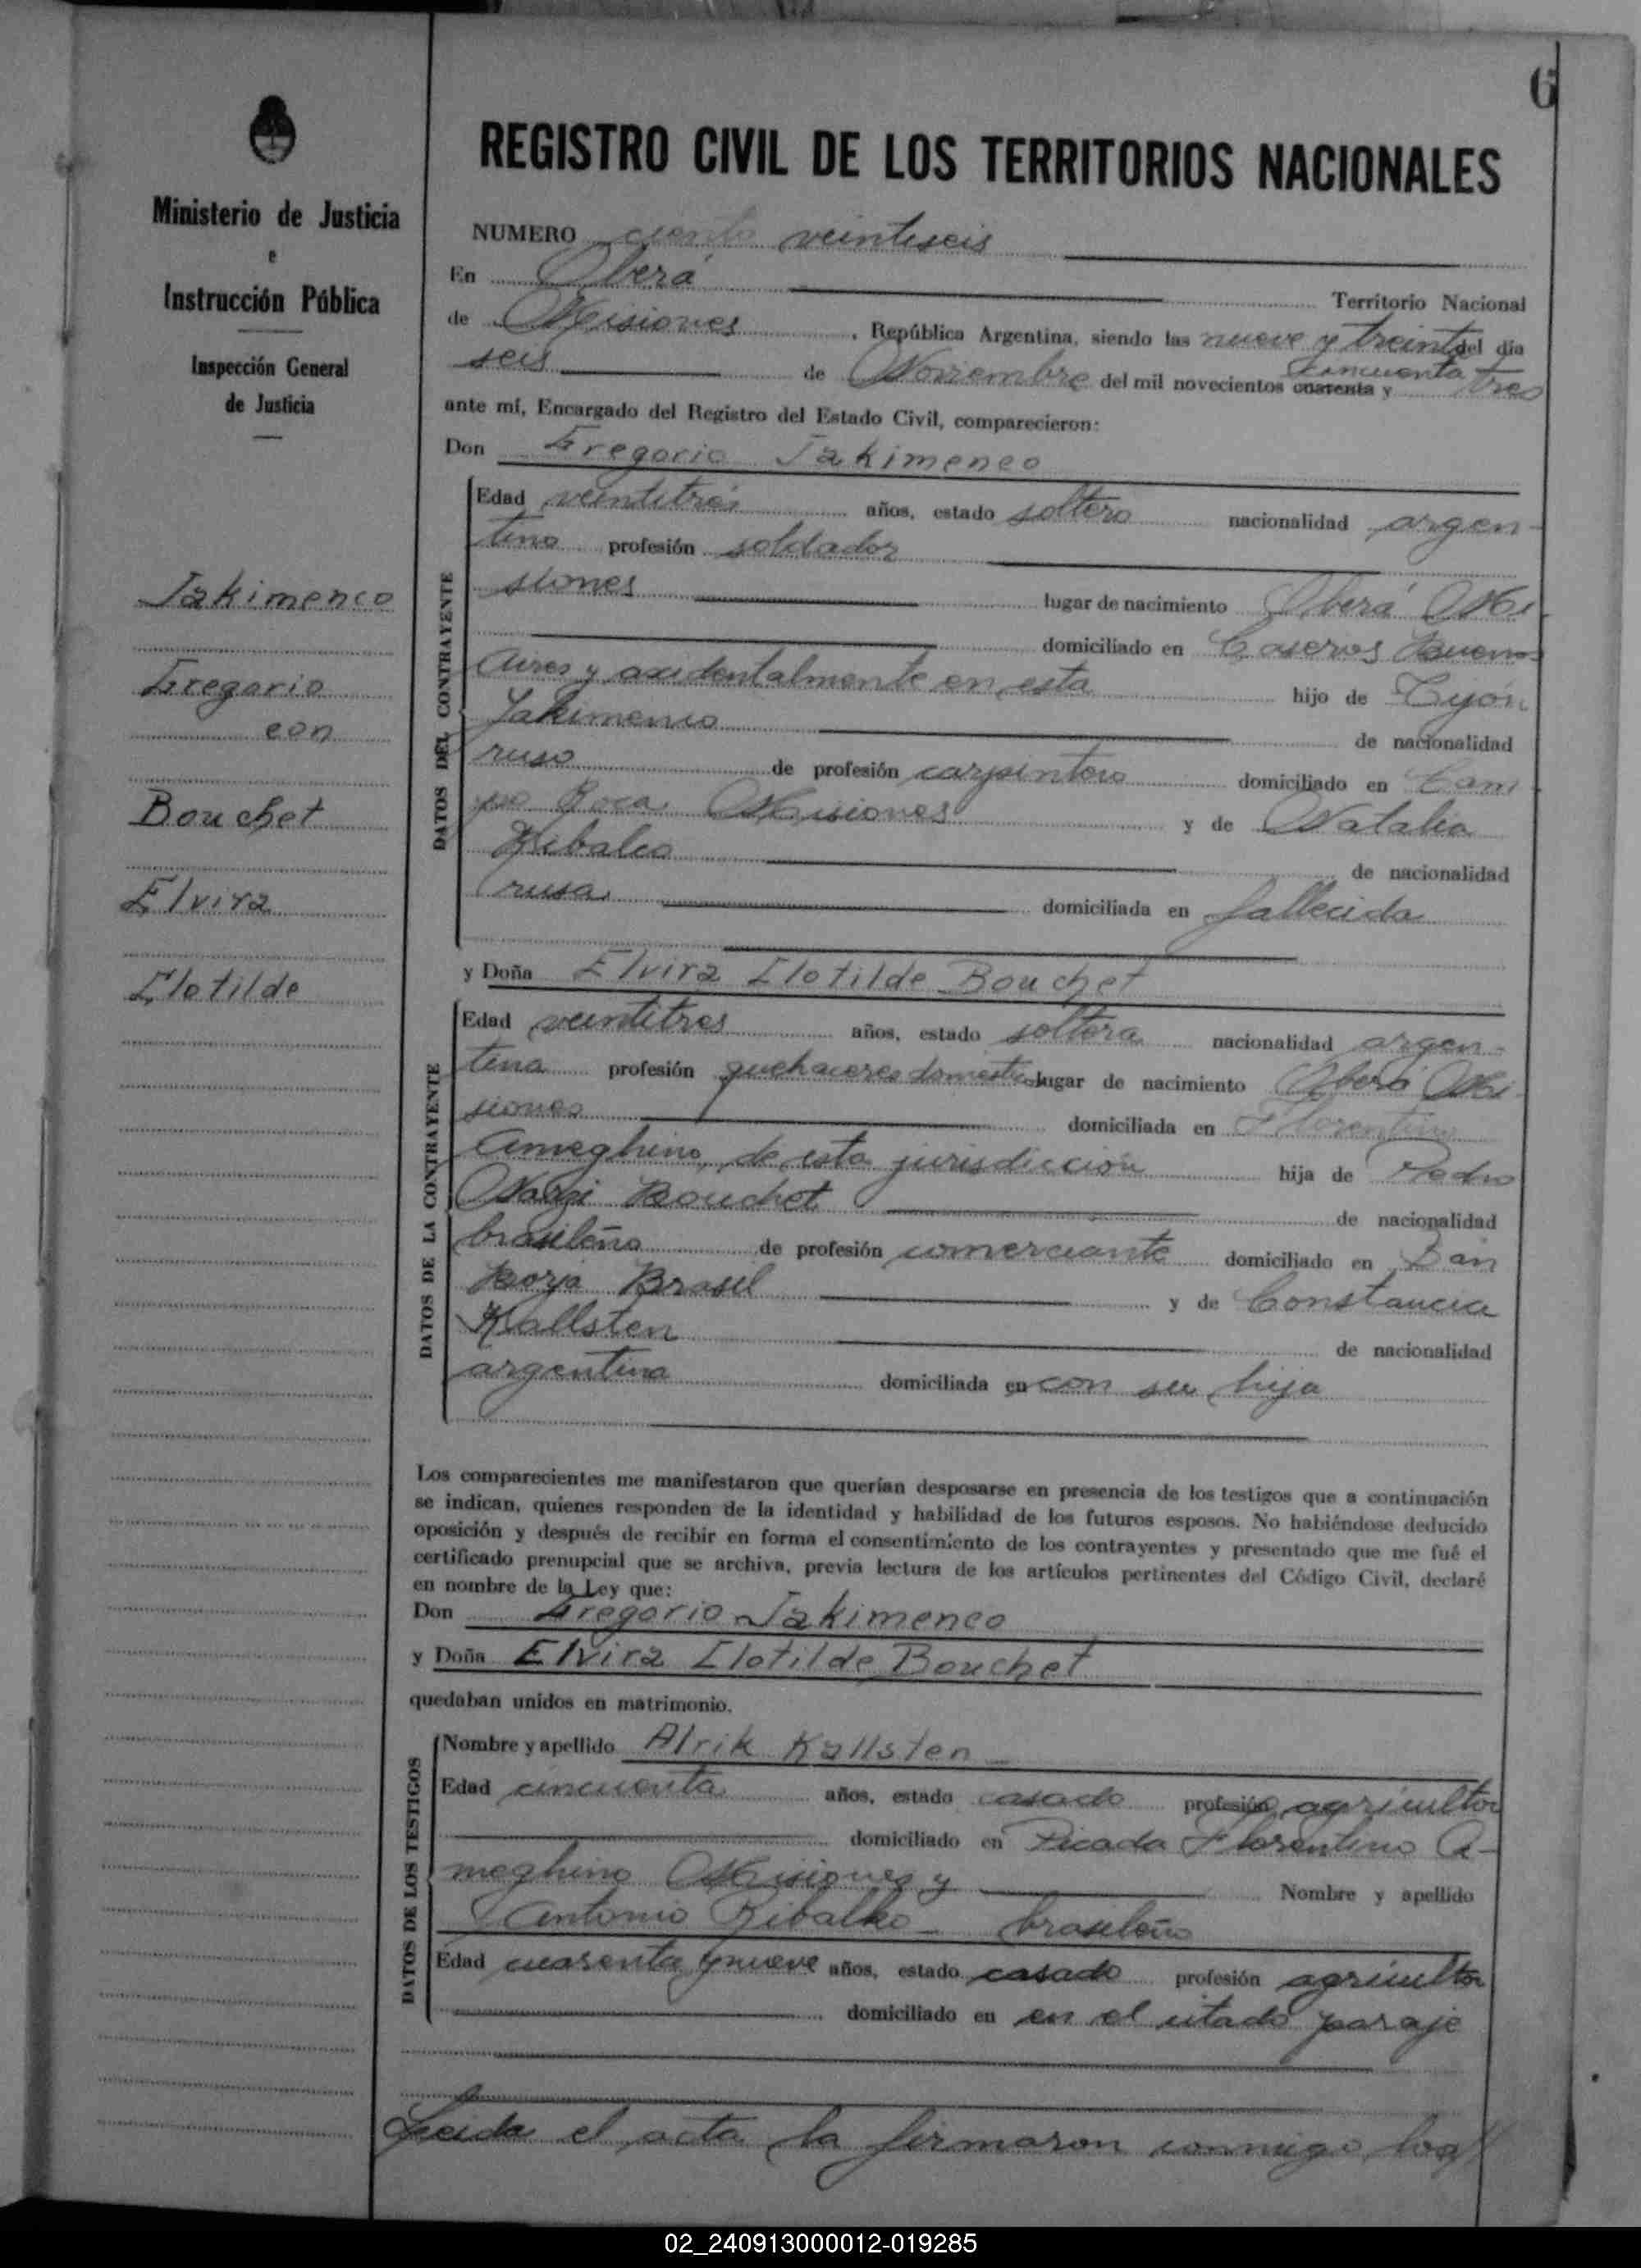 6
REGISTRO CIVIL DE LOS TERRITORIOS NACIONALES
Ministerio de Justicia
e
Instrucción Pública
Inspección General
de Justicia
Jakimenco
Gregorio
con
Bouchet
Elvira
Clotilde
NUMERO ciento veintiseis
En Oberá Territorio Nacional
de Misiones, República Argentina, siendo las nueve y treinta del día
seis de Noviembre del mil novecientos cuarenta y cincuenta tres
ante mí, Encargado del Registro del Estado Civil, comparecieron:
Don Gregorio Jakimenco
DATOS DEL CONTRAYENTE
Edad veintitrés años, estado soltero nacionalidad argen-
tino profesión soldador
siones lugar de nacimiento Oberá Mi-
domiciliado en Caseros Buenos
Aires y accidentalmente en esta hijo de
Jakimenco de nacionalidad
ruso de profesión carpintero domiciliado en Cam-
po Roca Misiones y de Natalia
Ribalco de nacionalidad
rusa domiciliada en fallecida
y Doña Elvira Clotilde Bouchet
DATOS DE LA CONTRAYENTE
Edad veintitres años, estado soltera nacionalidad argen-
tina profesión quehaceres domésticos lugar de nacimiento Oberá Mi-
siones domiciliada en Florentino
Ameghino, de esta jurisdicción hija de Pedro
Bouchet de nacionalidad
brasileño de profesión comerciante domiciliado en San
Borja Brasil y de Constancia
Kallsten de nacionalidad
argentina domiciliada en con su hija
Los comparecientes me manifestaron que querían desposarse en presencia de los testigos que a continuación
se indican, quienes responden de la identidad y habilidad de los futuros esposos. No habiéndose deducido
oposición y después de recibir en forma el consentimiento de los contrayentes y presentado que me fué el
certificado prenupcial que se archiva, previa lectura de los artículos pertinentes del Código Civil, declaré
en nombre de la Ley que:
Don Gregorio Jakimenco
y Doña Elvira Clotilde Bouchet
quedaban unidos en matrimonio.
DATOS DE LOS TESTIGOS
Nombre y apellido Alrik Kallsten
Edad cincuenta años, estado casado profesión agricultor
domiciliado en Picada Florentino A-
meghino Misiones y Nombre y apellido
Antonio Ribalko brasileño
Edad cuarenta y nueve años, estado casado profesión agricultor
domiciliado en en el citado paraje
Leida el acta la firmaron conmigo los
02_240913000012-019285